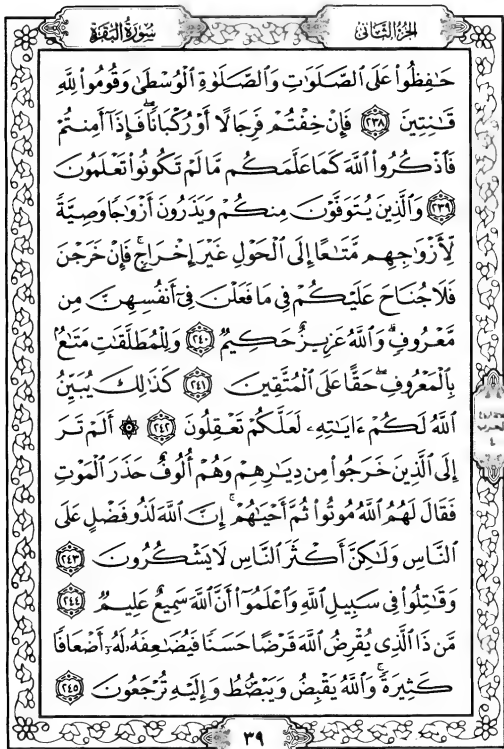 سورة البقرة
الجزء الثاني
حَٰفِظُوا۟ عَلَى ٱلصَّلَوَٰتِ وَٱلصَّلَوٰةِ ٱلْوُسْطَىٰ وَقُومُوا۟ لِلَّهِ
قَٰنِتِينَ ٢٣٨ فَإِنْ خِفْتُمْ فَرِجَالًا أَوْ رُكْبَانًا ۖ فَإِذَآ أَمِنتُمْ
فَٱذْكُرُوا۟ ٱللَّهَ كَمَا عَلَّمَكُم مَّا لَمْ تَكُونُوا۟ تَعْلَمُونَ
٢٣٩ وَٱلَّذِينَ يُتَوَفَّوْنَ مِنكُمْ وَيَذَرُونَ أَزْوَٰجًا وَصِيَّةً
لِّأَزْوَٰجِهِم مَّتَٰعًا إِلَى ٱلْحَوْلِ غَيْرَ إِخْرَاجٍ ۚ فَإِنْ خَرَجْنَ
فَلَا جُنَاحَ عَلَيْكُمْ فِى مَا فَعَلْنَ فِىٓ أَنفُسِهِنَّ مِن
مَّعْرُوفٍ ۗ وَٱللَّهُ عَزِيزٌ حَكِيمٌ ٢٤٠ وَلِلْمُطَلَّقَٰتِ مَتَٰعٌۢ
بِٱلْمَعْرُوفِ ۖ حَقًّا عَلَى ٱلْمُتَّقِينَ ٢٤١ كَذَٰلِكَ يُبَيِّنُ
ٱللَّهُ لَكُمْ ءَايَٰتِهِۦ لَعَلَّكُمْ تَعْقِلُونَ ٢٤٢ ۞ أَلَمْ تَرَ
إِلَى ٱلَّذِينَ خَرَجُوا۟ مِن دِيَٰرِهِمْ وَهُمْ أُلُوفٌ حَذَرَ ٱلْمَوْتِ
فَقَالَ لَهُمُ ٱللَّهُ مُوتُوا۟ ثُمَّ أَحْيَٰهُمْ ۚ إِنَّ ٱللَّهَ لَذُو فَضْلٍ عَلَى
ٱلنَّاسِ وَلَٰكِنَّ أَكْثَرَ ٱلنَّاسِ لَا يَشْكُرُونَ ٢٤٣
وَقَٰتِلُوا۟ فِى سَبِيلِ ٱللَّهِ وَٱعْلَمُوٓا۟ أَنَّ ٱللَّهَ سَمِيعٌ عَلِيمٌ ٢٤٤
مَّن ذَا ٱلَّذِى يُقْرِضُ ٱللَّهَ قَرْضًا حَسَنًا فَيُضَٰعِفَهُۥ لَهُۥٓ أَضْعَافًا
كَثِيرَةً ۚ وَٱللَّهُ يَقْبِضُ وَيَبْصُۜطُ وَإِلَيْهِ تُرْجَعُونَ ٢٤٥
٣٩